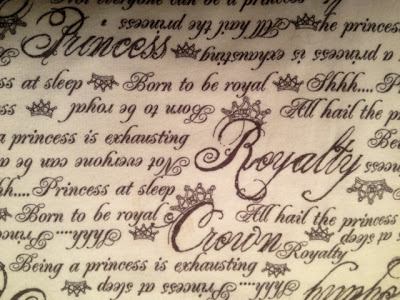 Not everyone can be a princess
All hail the princess
Princess
Being a princess is exhausting
a princess is exhaus
ss at sleep
Born to be royal
Shhh.... P
Born to be royal
All hail the princ
a princess is exhausting
Royalty
Bei
Not everyone can be a
princess
hh....Princess at sleep
Born to be royal
Crown
All hail the princess
Shhh....
Princ
Royalty
at sleep
Being a princess is exhausting
Royalty